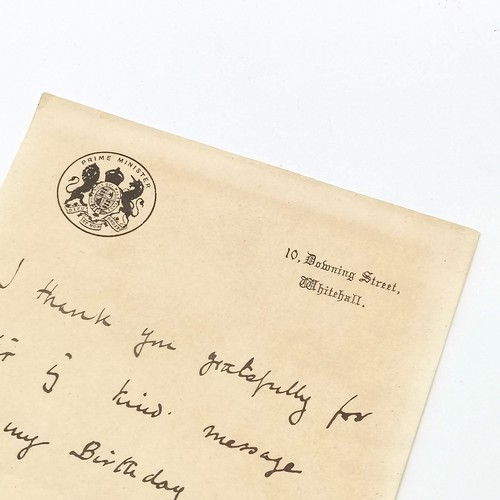 PRIME MINISTER
10, Downing Street,
Whitehall.
I thank you gratefully for
kind message
my Birthday